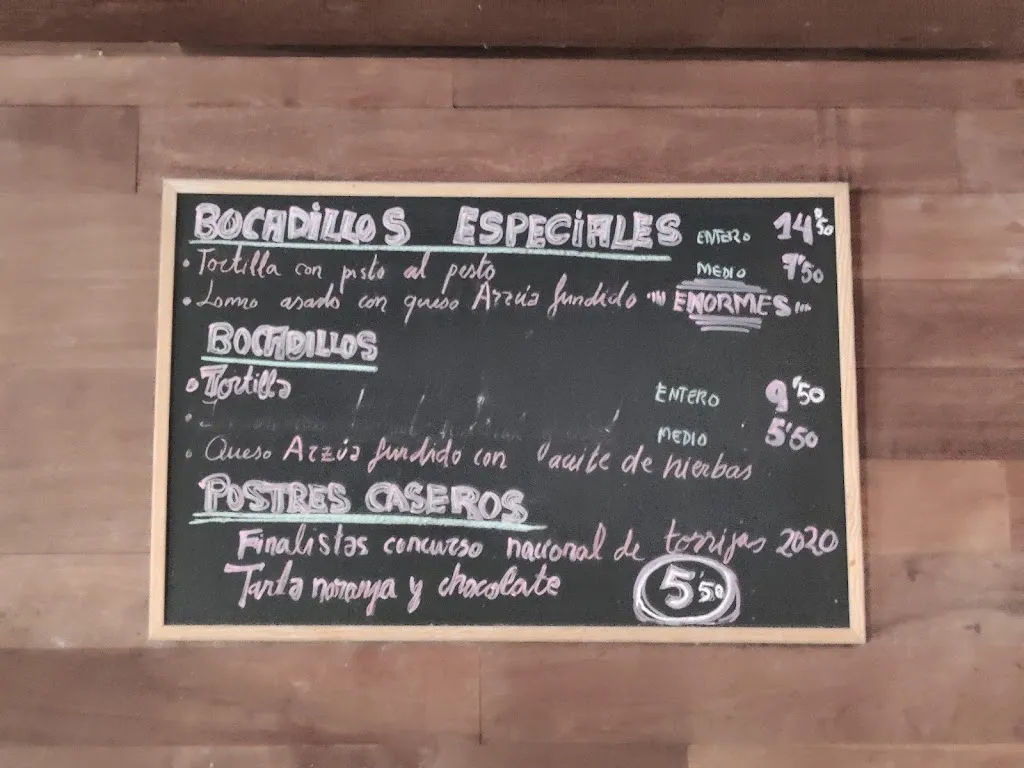 BOCADILLOS ESPECIALES ENTERO 14'50
• Tortilla con pisto al pesto MEDIO 7'50
• Lomo asado con queso Arzúa fundido "" ENORMES...
BOCADILLOS
• Tortilla ENTERO 9'50
MEDIO 5'50
• Queso Arzúa fundido con aceite de hierbas
POSTRES CASEROS
Finalistas concurso nacional de torrijas 2020
Tarta naranja y chocolate 5 50